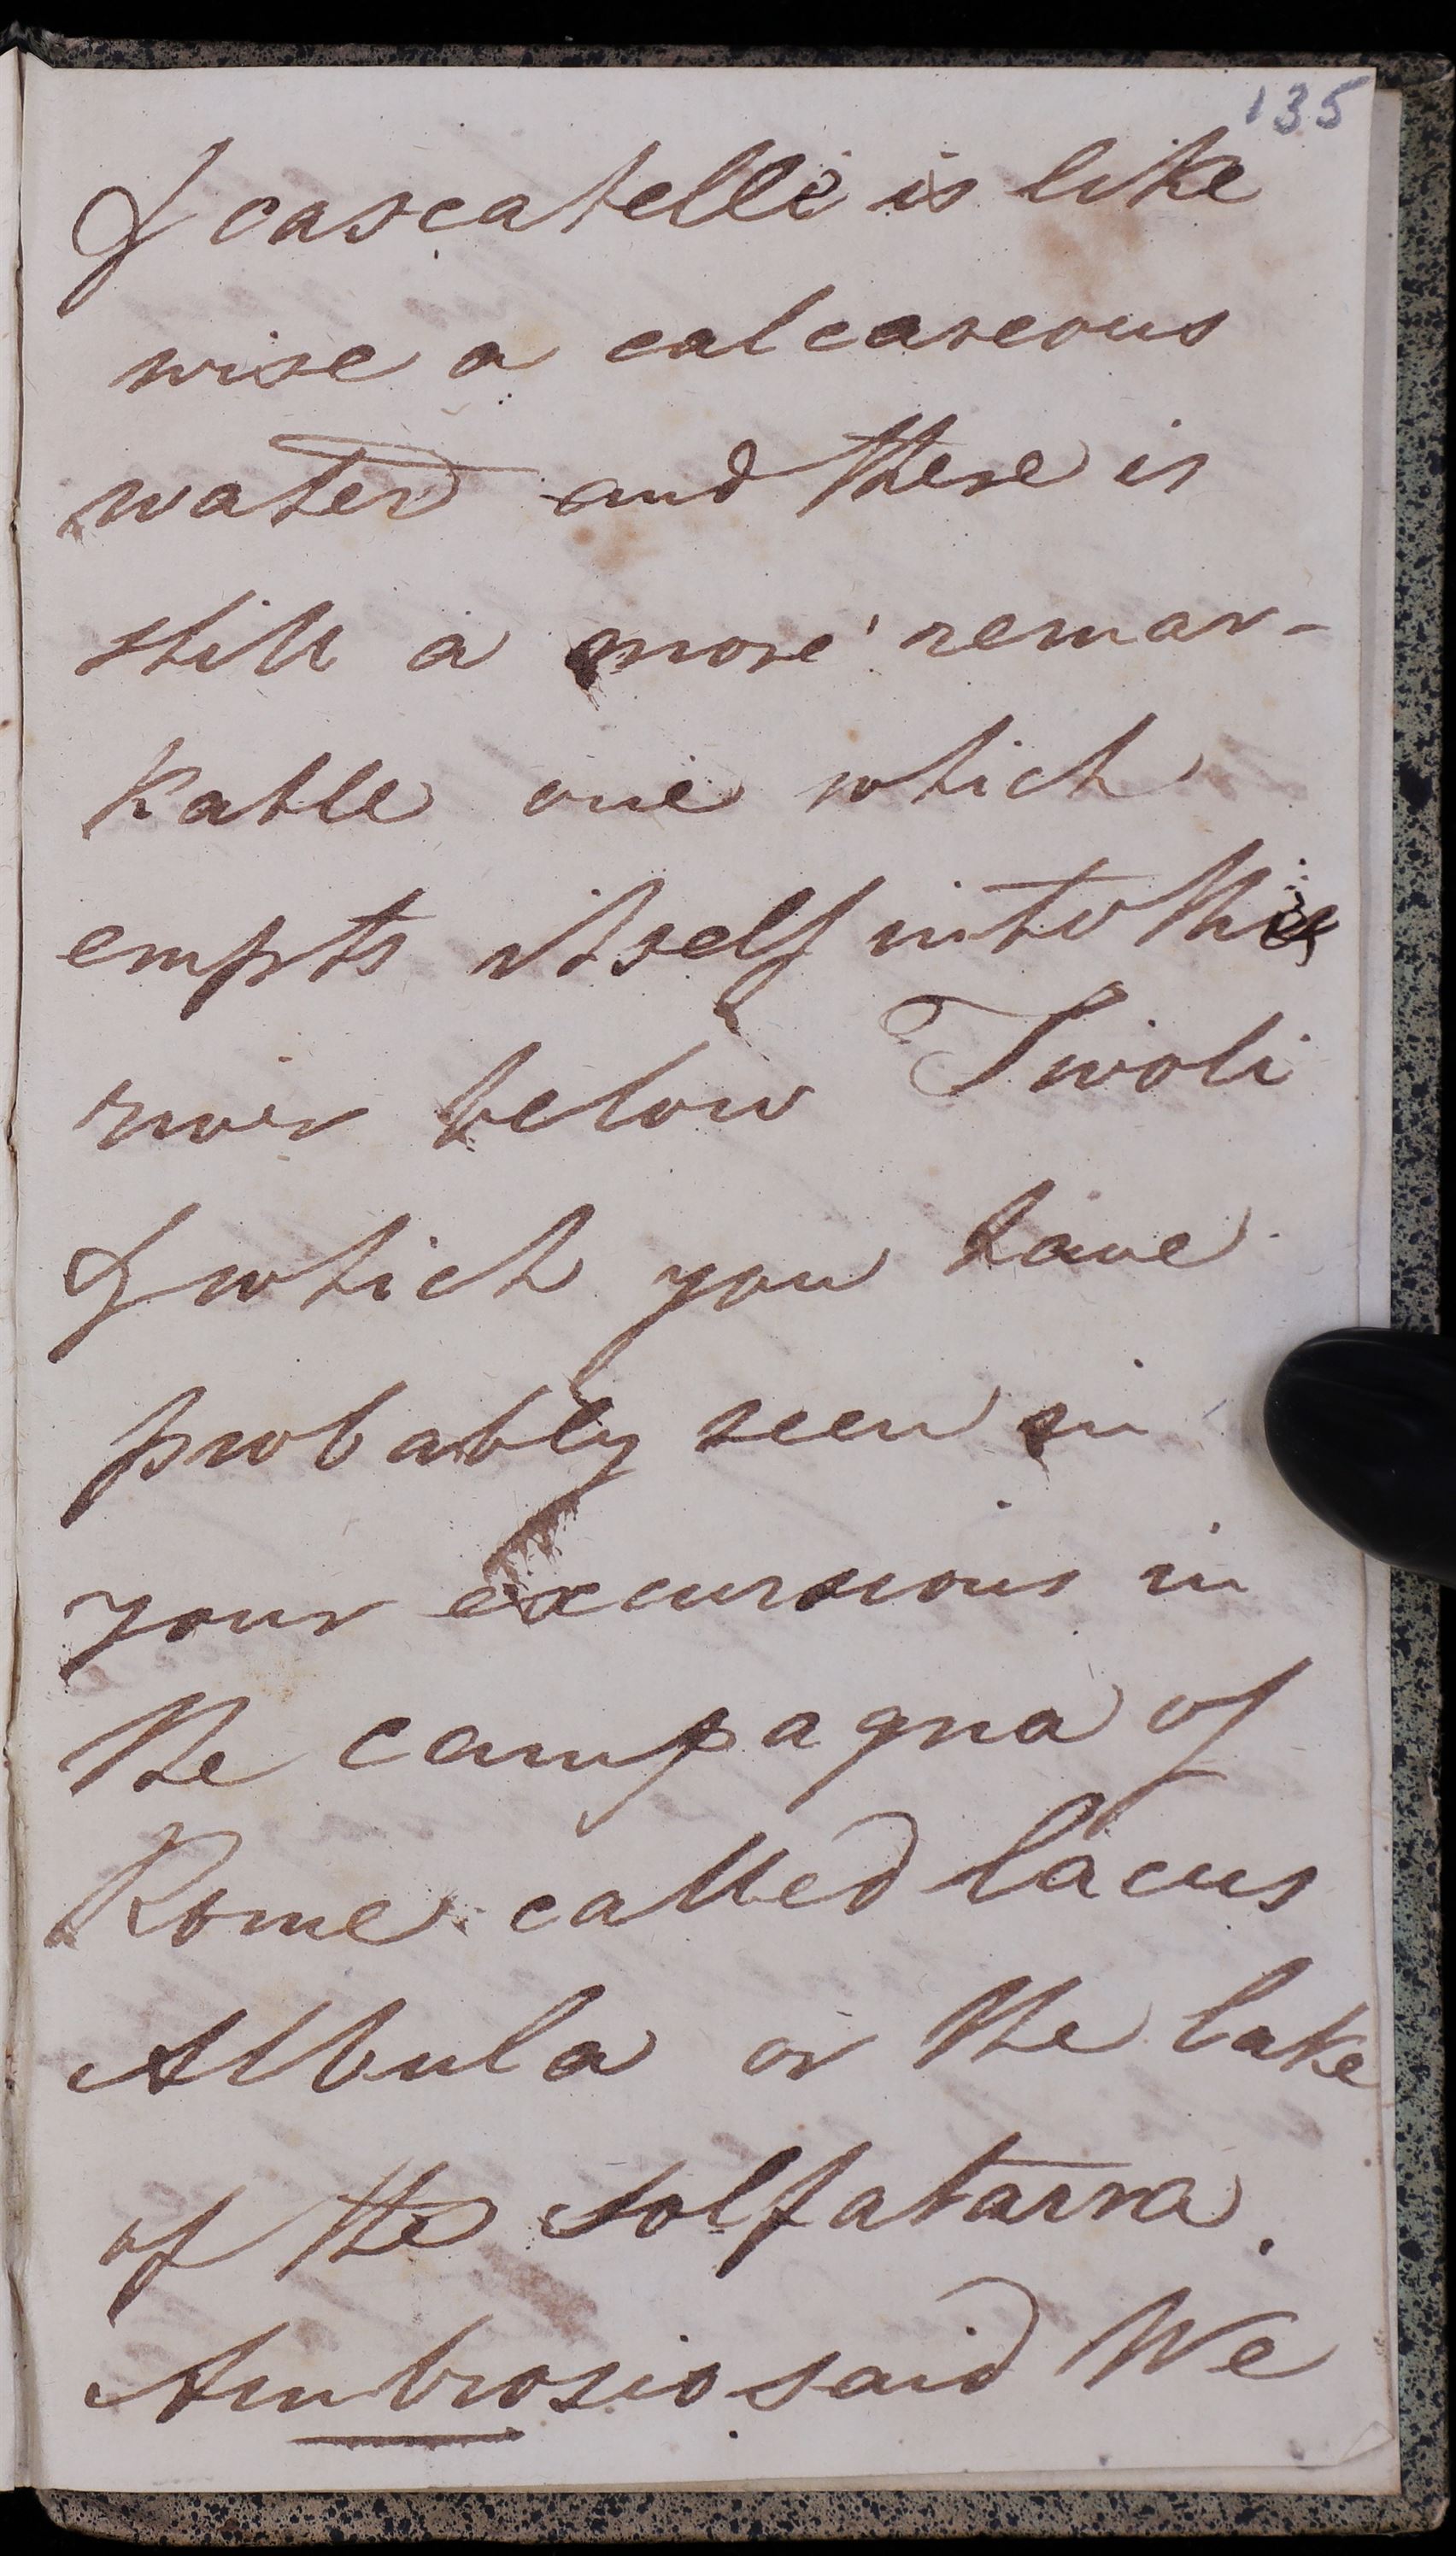 135
& cascatelle is like
wise a calcareous
water and there is
still a more remar-
kable one which
empts itself into this
river below Tivoli
& which you have
probably seen in
your excursions in
the campagna of
Rome called lacus
Albula or the lake
of the Solfatarra.
Ambrosio said We